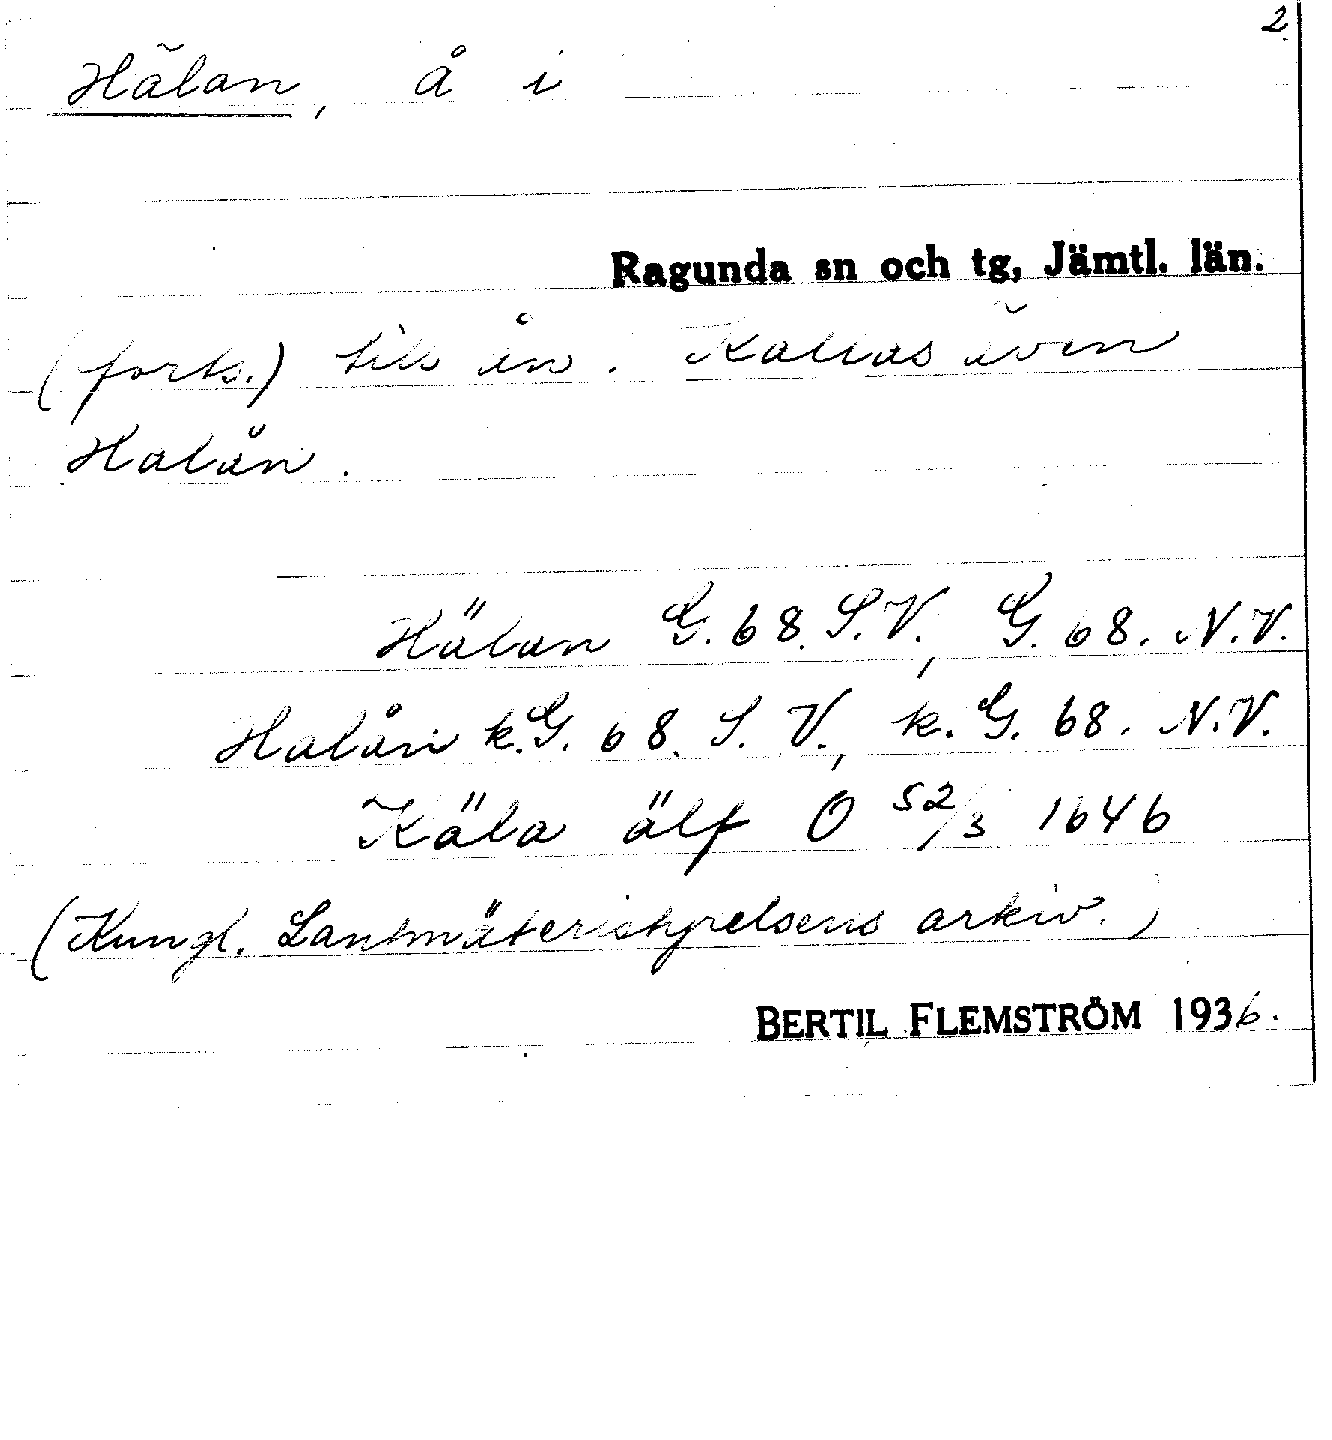 2
Hälan, å i
Ragunda sn och tg, Jämtl. län.
(forts.) till ån. Kallas även
Halån.
Hälan G. 68. S.V., G. 68. N.V.
Halån k.G. 68. S.V., k. G. 68. N.V.
Käla älf O 52/3 1646
(Kungl. Lantmäteristyrelsens arkiv.)
BERTIL FLEMSTRÖM 1936.